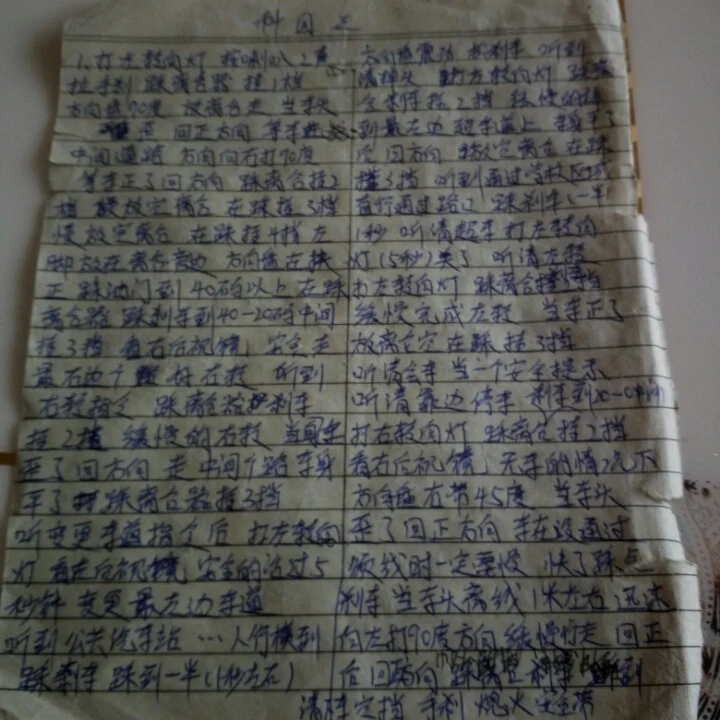 科目三
1.打左转向灯 按喇叭2声
拉手刹 踩离合器 挂1档
方向盘90度 放离合走 当车头
回正方向 等车
中间道路 方向向右打90度
等车正了回方向 踩离合挂2
档 慢放完离合 在踩挂3档
慢放完离合 在踩挂4挡 左
脚放在离合旁边 方向盘左扶
正 踩油门到40码以上 在踩
离合器 踩刹车到40-20码中间
挂3挡 看右后视镜 安全走
最右边个 好右转 听到
右转指令 踩离合器 刹车
挂2挡 缓慢的右转 当车
正了回方向 走中间个路 车身
平了 踩离合器挂3挡
听变更车道指令后 打左转向
灯 看左后视镜 安全的话过5
秒钟 变更最左边车道
听到公共汽车站 … 人行横到
踩刹车 踩到一半(1秒左右)
听到
请掉头 打左转向灯 踩离
合刹车挂2挡 缓慢的掉
到最左边超车道上 车身平了
后回方向 放完离合 在踩
挂3挡 听到通过学校区或
直行通过路口 踩刹车(一半
1秒 听请超车 打左转向
灯(5秒)关了 听请左转
打左转向灯 踩离合挂
缓慢完成左转 当车正了
放离合完在踩挂3挡
听请会车 当一个安全提示
听请靠边停车 刹车到20-0中间
打右转向灯 踩离合挂2挡
看右后视镜 无车的情况下
方向盘右带45度 当车头
正了回正方向 车在没通过
线时一定要慢 快了踩点
刹车 当车头离线1米左右 迅速
向左打90度方向 缓慢行走 回正
后回方向 刹车 到
请停车 空挡 手刹 熄火 安全带